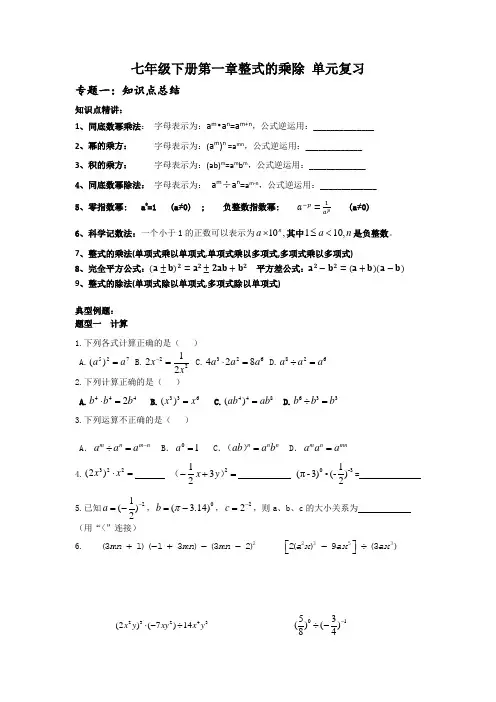 七年级下册第一章整式的乘除 单元复习
专题一：知识点总结
知识点精讲：
1、同底数幂乘法： 字母表示为：aᵐ•aⁿ=aᵐ⁺ⁿ，公式逆运用：______________
2、幂的乘方： 字母表示为：(aᵐ)ⁿ =aᵐⁿ，公式逆运用：_____________
3、积的乘方： 字母表示为：(ab)ᵐ=aᵐbᵐ，公式逆运用：_____________
4、同底数幂除法： 字母表示为： aᵐ÷aⁿ=aᵐ⁻ⁿ，公式逆运用：_____________
5、零指数幂： a⁰=1 (a≠0) ； 负整数指数幂： a⁻ᵖ = 1/aᵖ (a≠0)
6、科学记数法：一个小于 1 的正数可以表示为 a×10ⁿ,其中1≤a<10,n是负整数。
7、整式的乘法(单项式乘以单项式,单项式乘以多项式,多项式乘以多项式)
8、完全平方公式：(a±b)² = a² ± 2ab + b² 平方差公式：a² − b² = (a + b)(a − b)
9、整式的除法(单项式除以单项式,多项式除以单项式)
典型例题：
题型一 计算
1.下列各式计算正确的是（ ）
A.(a⁵)² = a⁷ B.2x⁻² = 1/2x² C.4a³·2a² = 8a⁶ D.a⁸÷a² = a⁶
2.下列计算正确的是（ ）
A.b⁴·b⁴ = 2b⁴ B.(x³)³ = x⁶ C.(ab⁴)⁴ = ab⁸ D.b⁶÷b³ = b³
3.下列运算不正确的是（ ）
A．aᵐ÷aⁿ = aᵐ⁻ⁿ B．a⁰ = 1 C．（ab）ⁿ = aⁿbⁿ D．aᵐaⁿ = aᵐⁿ
4.(2x³)²·x² = （−1/2 x + 3y）² = (π-3)⁰·(-1/2)⁻³=
5.已知a = (−1/2)⁻²，b = (π − 3.14)⁰，c = 2⁻²，则 a、b、c 的大小关系为
(用“〈”连接)
6. (3mn + 1) (−1 + 3mn) − (3mn − 2)² [2(a²x)² − 9ax⁵] ÷ (3ax³)
(2x²y)³·(−7xy²)÷14x⁴y³ (5/8)⁰ ÷ (−3/4)⁻¹